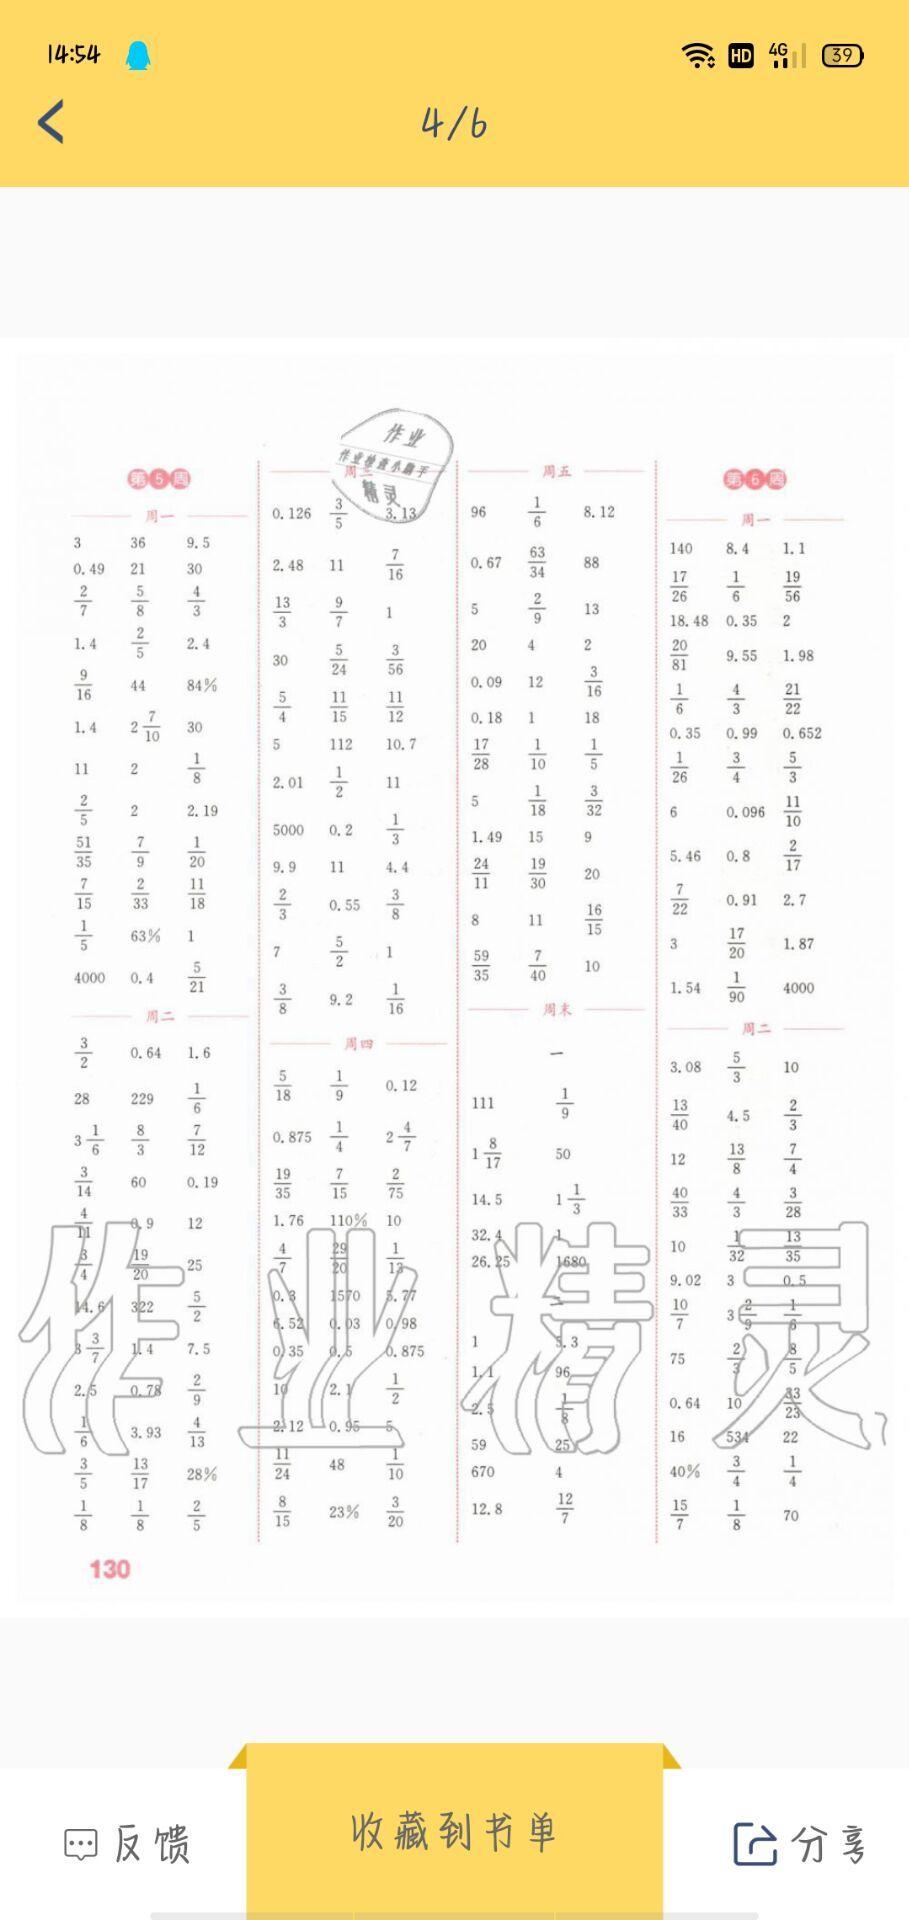 14:54 HD 4G 39
4/6
作业
作业检查小助手
精灵
第5周
周一
3 36 9.5
0.49 21 30
2/7 5/8 4/3
1.4 2/5 2.4
9/16 44 84%
1.4 2 7/10 30
11 2 1/8
2/5 2 2.19
51/35 7/9 1/20
7/15 2/33 11/18
1/5 63% 1
4000 0.4 5/21
周二
3/2 0.64 1.6
28 229 1/6
3 1/6 8/3 7/12
3/14 60 0.19
4/11 0.9 12
3/4 19/20 25
14.6 322 5/2
3 3/7 1.4 7.5
2.5 0.78 2/9
1/6 3.93 4/13
3/5 13/17 28%
1/8 1/8 2/5
130
周三
0.126 3/5 3.13
2.48 11 7/16
13/3 9/7 1
30 5/24 3/56
5/4 11/15 11/12
5 112 10.7
2.01 1/2 11
5000 0.2 1/3
9.9 11 4.4
2/3 0.55 3/8
7 5/2 1
3/8 9.2 1/16
周四
5/18 1/9 0.12
0.875 1/4 2 4/7
19/35 7/15 2/75
1.76 110% 10
4/7 29/20 1/13
0.3 1570 5.77
6.52 0.03 0.98
0.35 0.5 0.875
10 2.1 1/2
2.12 0.95 5
11/24 48 1/10
8/15 23% 3/20
周五
96 1/6 8.12
0.67 63/34 88
5 2/9 13
20 4 2
0.09 12 3/16
0.18 1 18
17/28 1/10 1/5
5 1/18 3/32
1.49 15 9
24/11 19/30 20
8 11 16/15
59/35 7/40 10
周末
一
111 1/9
1 8/17 50
14.5 1 1/3
32.4 1
26.25 1680
二
1 5.3
1.1 96
2.5 1/8
59 25
670 4
12.8 12/7
第6周
周一
140 8.4 1.1
17/26 1/6 19/56
18.48 0.35 2
20/81 9.55 1.98
1/6 4/3 21/22
0.35 0.99 0.652
1/26 3/4 5/3
6 0.096 11/10
5.46 0.8 2/17
7/22 0.91 2.7
3 17/20 1.87
1.54 1/90 4000
周二
3.08 5/3 10
13/40 4.5 2/3
12 13/8 7/4
40/33 4/3 3/28
10 1/32 13/35
9.02 3 0.5
10/7 3 2/9 1/6
75 2/3 8/5
0.64 10 33/23
16 534 22
40% 3/4 1/4
15/7 1/8 70
作业精灵
反馈 收藏到书单 分享